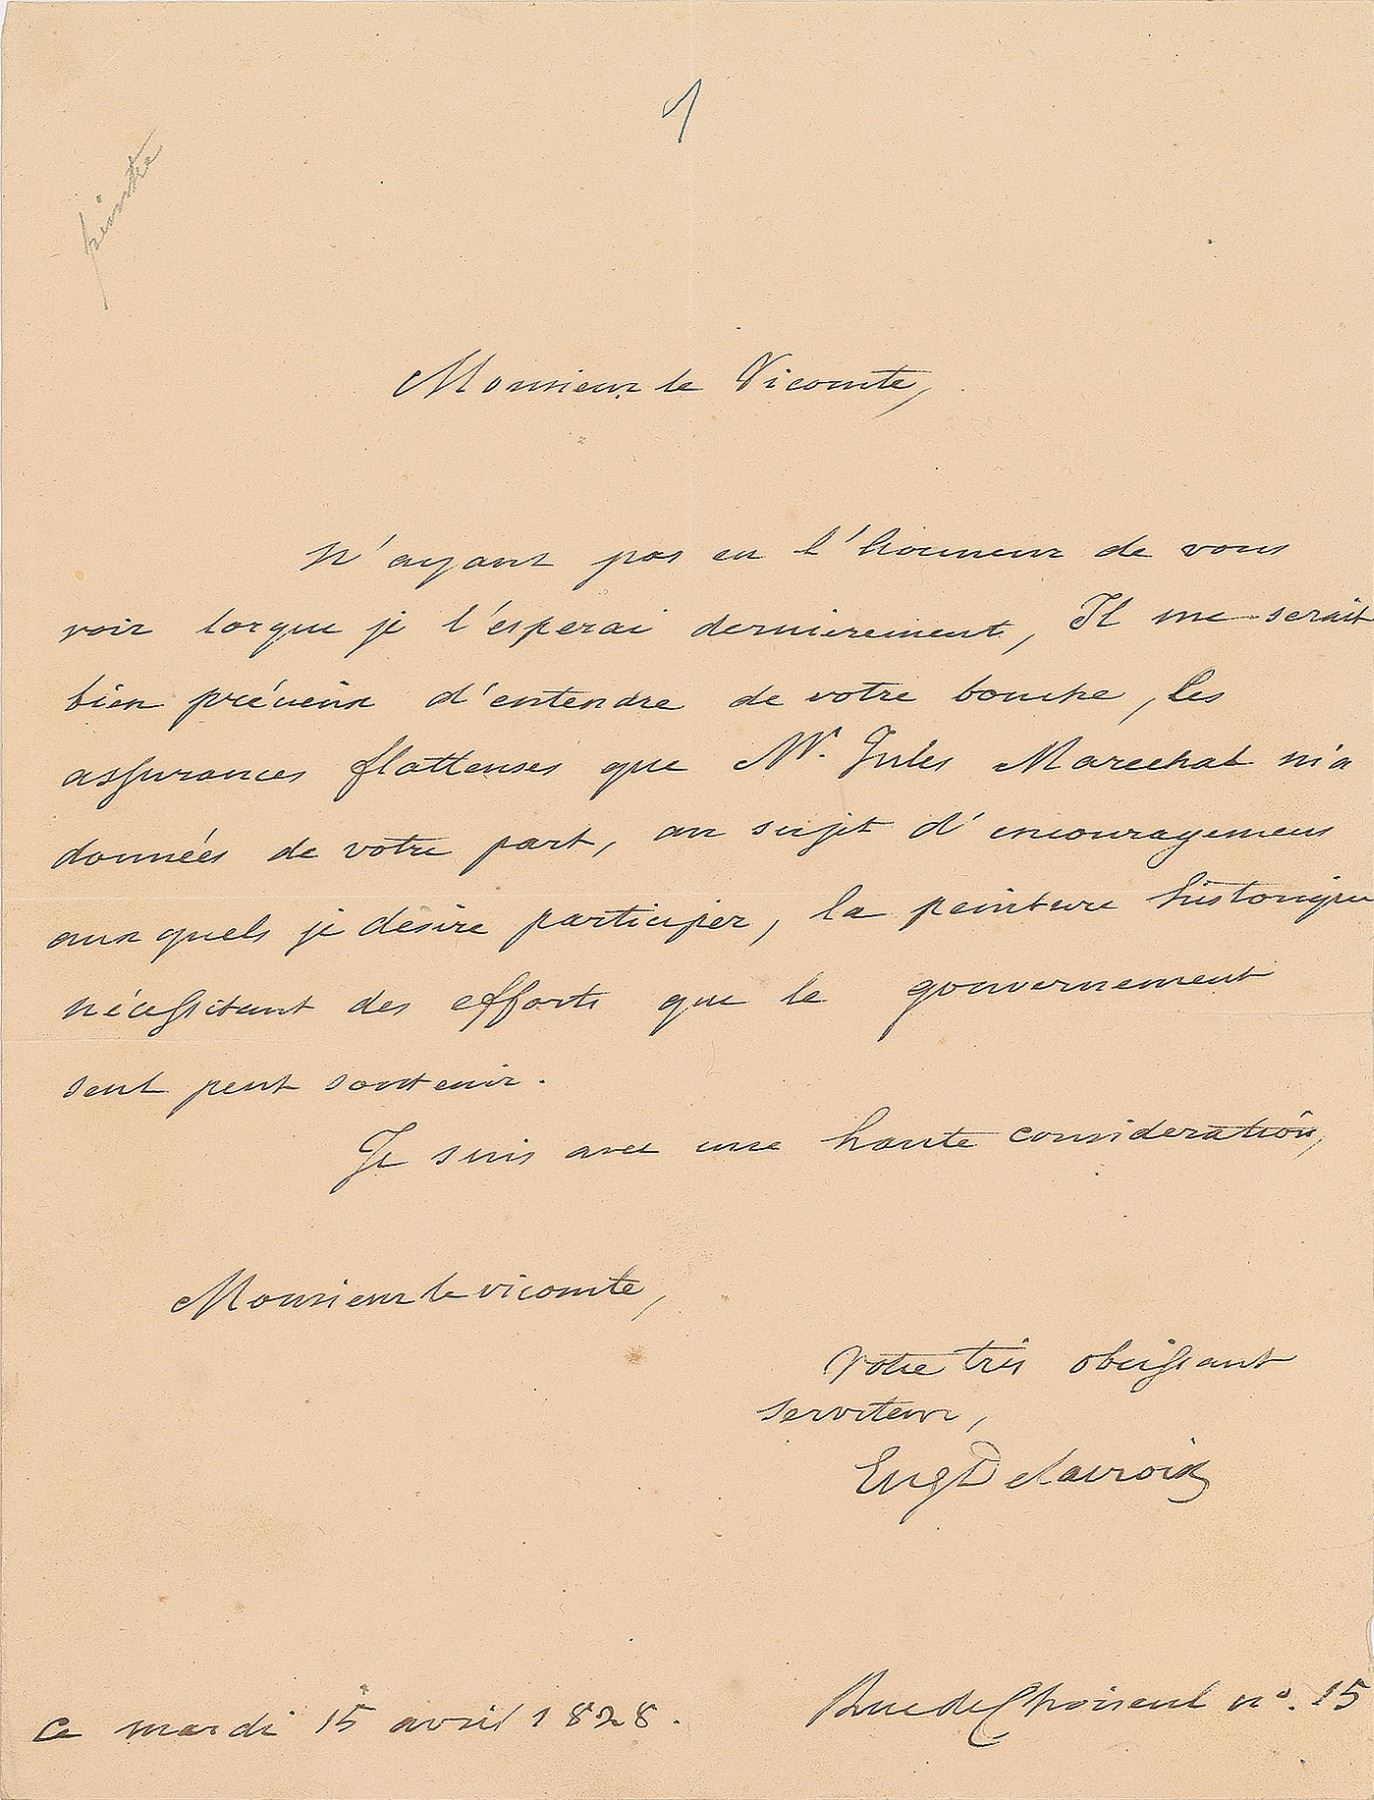 peintre
Monsieur le Vicomte,
N'ayant pas eu l'honneur de vous
voir lorque je l'esperai dernierement, Il me serait
bien précieux d'entendre de votre bouche, les
assurances flatteuses que Mr. Jules Marechal m'a
données de votre part, au sujet d'encouragemens
aux quels je desire participer, la peinture historique
nécessitant des efforts que le gouvernement
seul peut soutenir.
Je suis avec une haute consideration,
Monsieur le vicomte,
Votre très obeissant
serviteur,
Eug Delacroix
ce mardi 15 avril 1828.
Rue de Choiseul no. 15